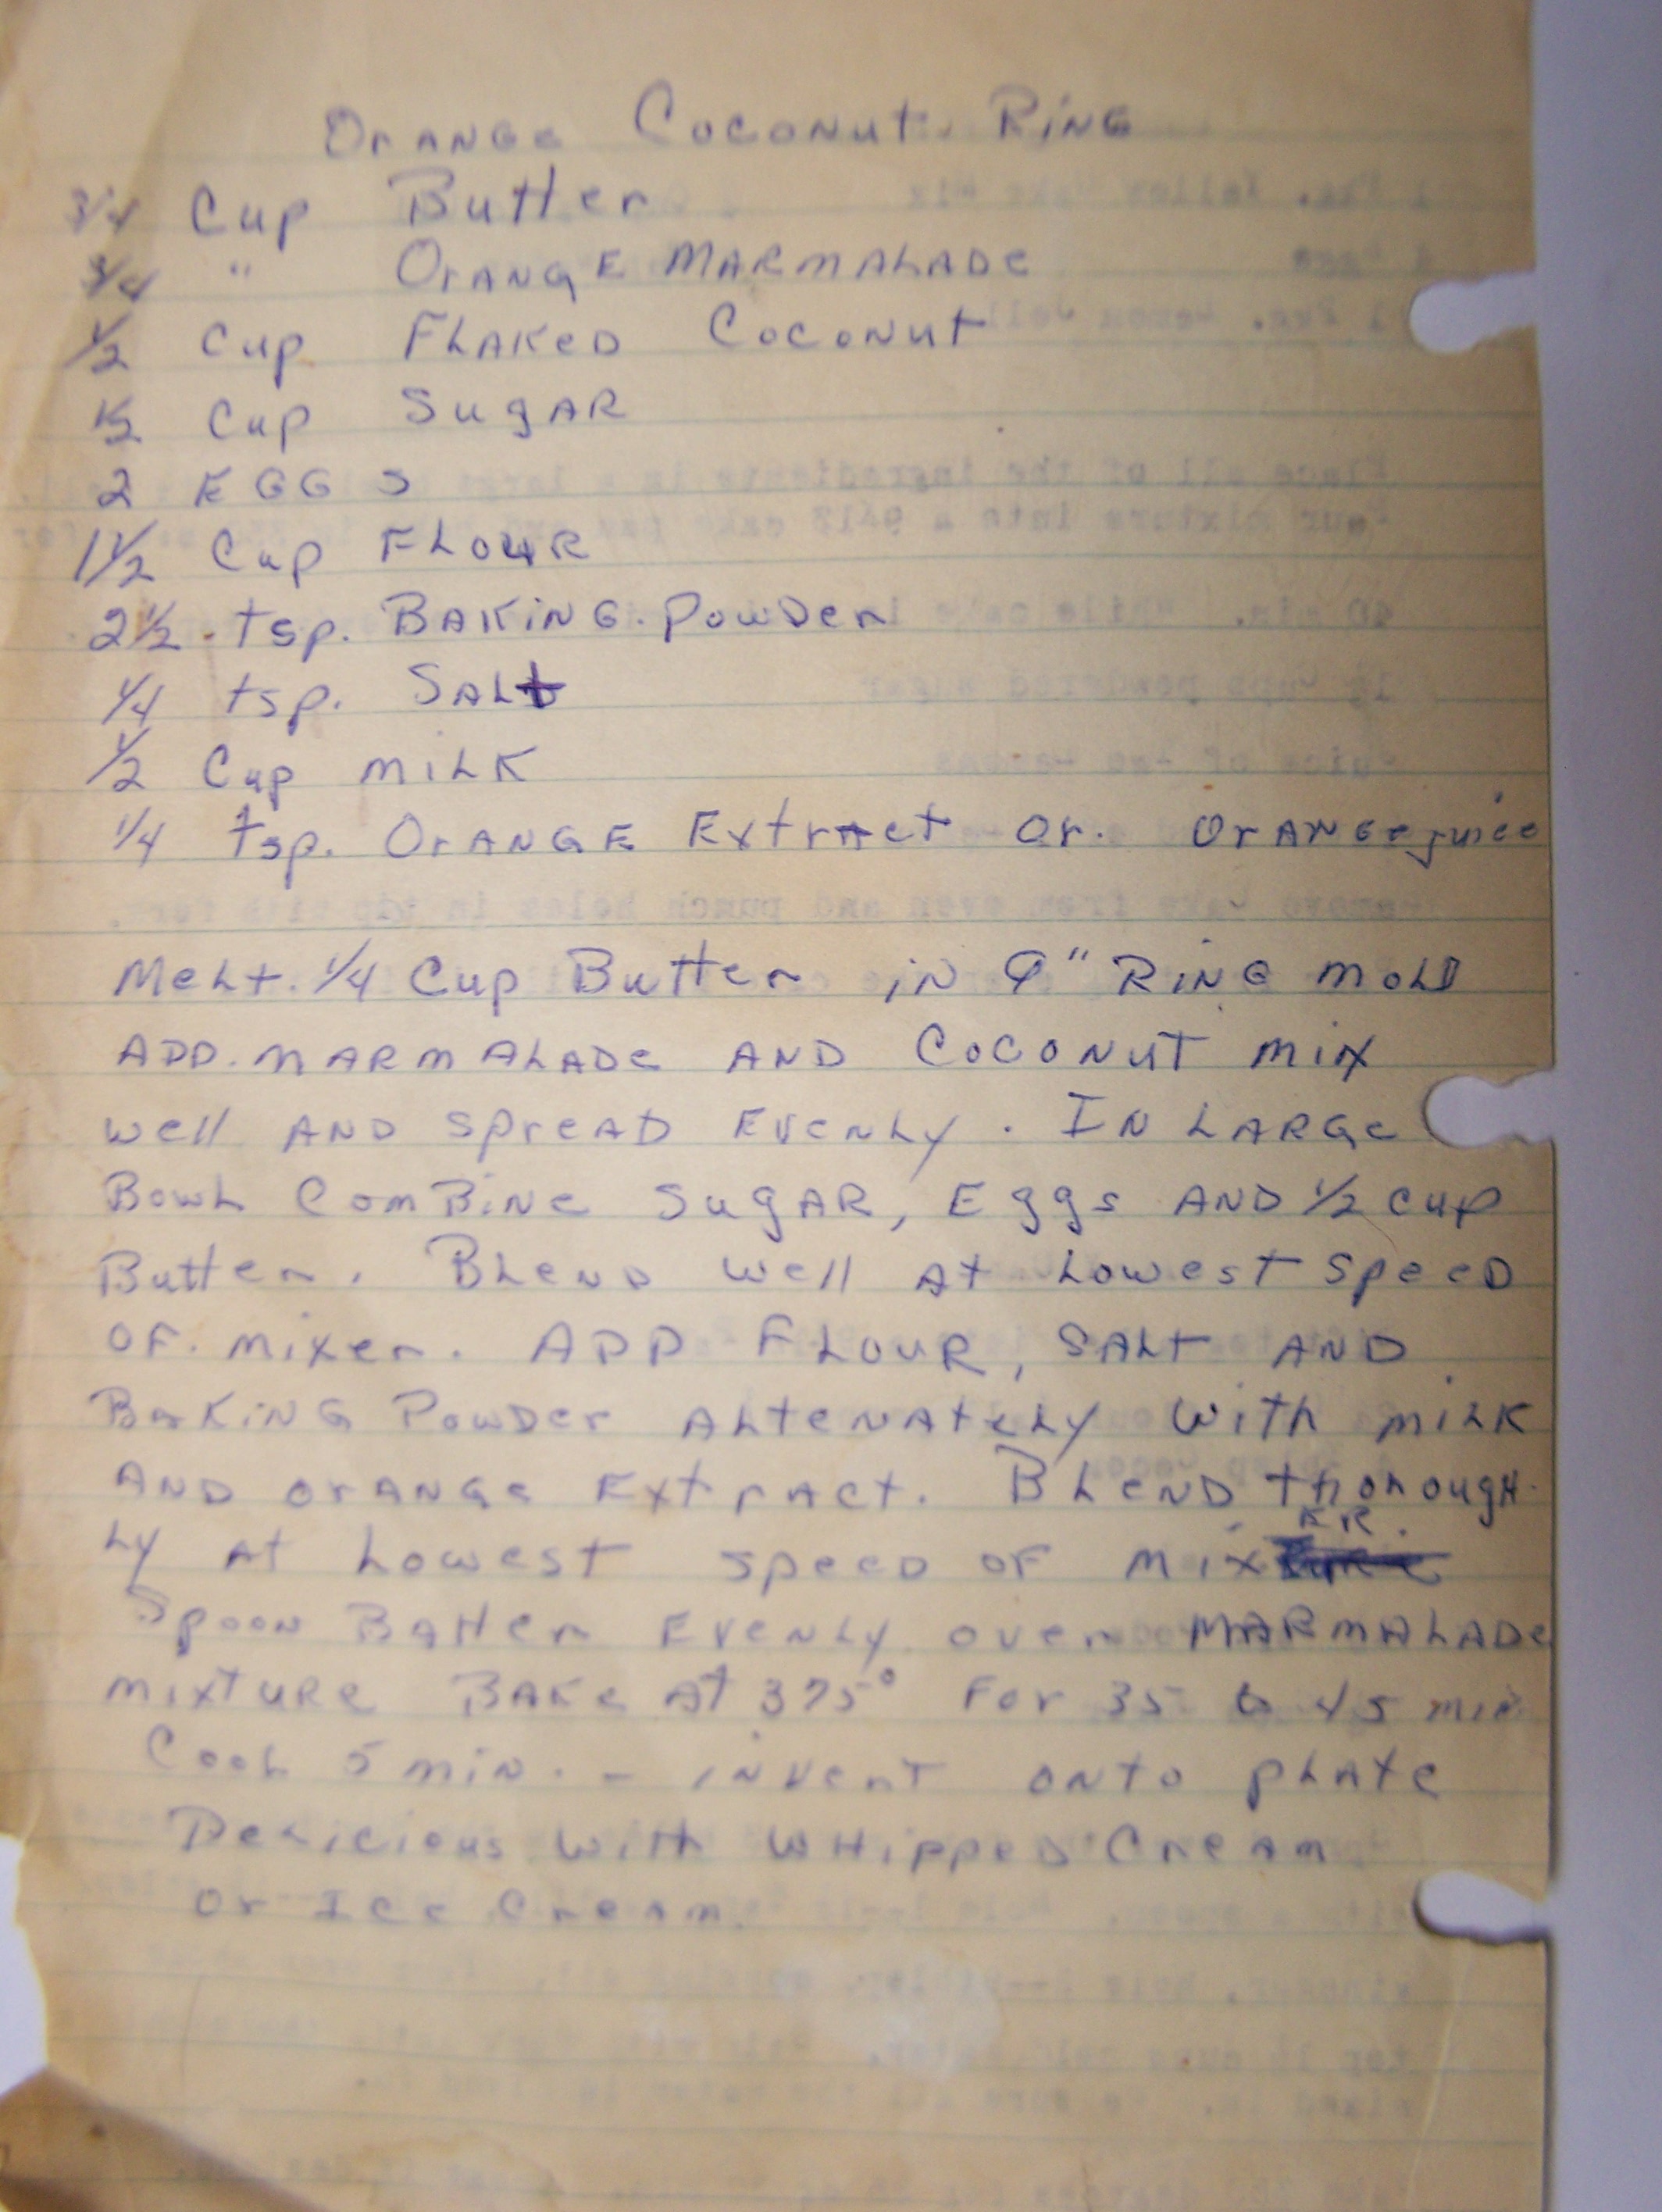 Orange Coconut Ring
3/4 Cup Butter
3/4 " Orange Marmalade
1/2 Cup Flaked Coconut
1/2 Cup Sugar
2 Eggs
1 1/2 Cup Flour
2 1/2 tsp. Baking Powder
1/4 tsp. Salt
1/2 Cup Milk
1/4 tsp. Orange Extract or. Orange juice
Melt. 1/4 Cup Butter in 9" Ring Mold
Add. Marmalade and Coconut mix
well and spread evenly. In Large
Bowl Combine Sugar, Eggs and 1/2 cup
Butter. Blend well at lowest speed
of. mixer. Add Flour, Salt and
Baking Powder Altenately with milk
and orange Extract. Blend thorough-
ly at Lowest speed of mixer.
Spoon Batter evenly over Marmalade
mixture Bake at 375° For 35 to 45 min
Cool 5 min. - invert onto plate
Delicious with Whipped Cream
or Ice Cream.